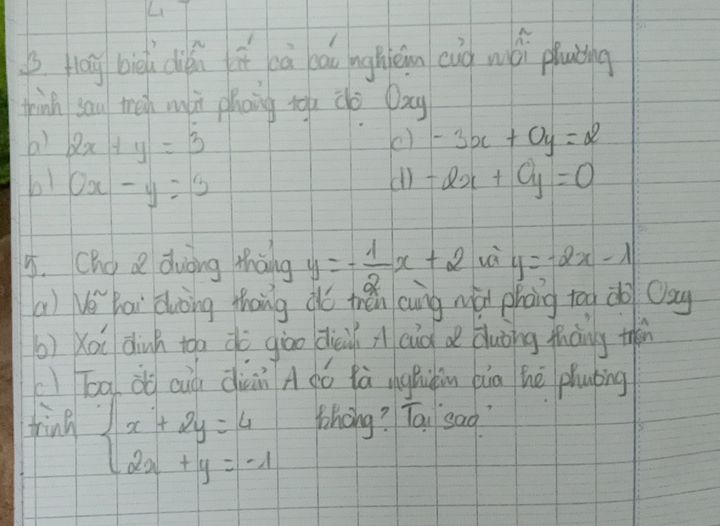 3. Hãy biểu diễn tất cả các nghiệm của mỗi phương
trình sau trên mặt phẳng tọa độ Oxy
a) 2x + y = 3 c) -3x + 0y = 2
b) 0x - y = 3 d) -2x + 0y = 0
5. Cho 2 đường thẳng y = -1/2 x + 2 và y = -2x - 1
a) Vẽ hai đường thẳng đó trên cùng một phẳng tọa độ Oxy
b) Xác định tọa độ giao điểm A của 2 đường thẳng trên
c) Tọa độ của điểm A có là nghiệm của hệ phương
trình { x + 2y = 4 không? Tại sao?
2x + y = -1